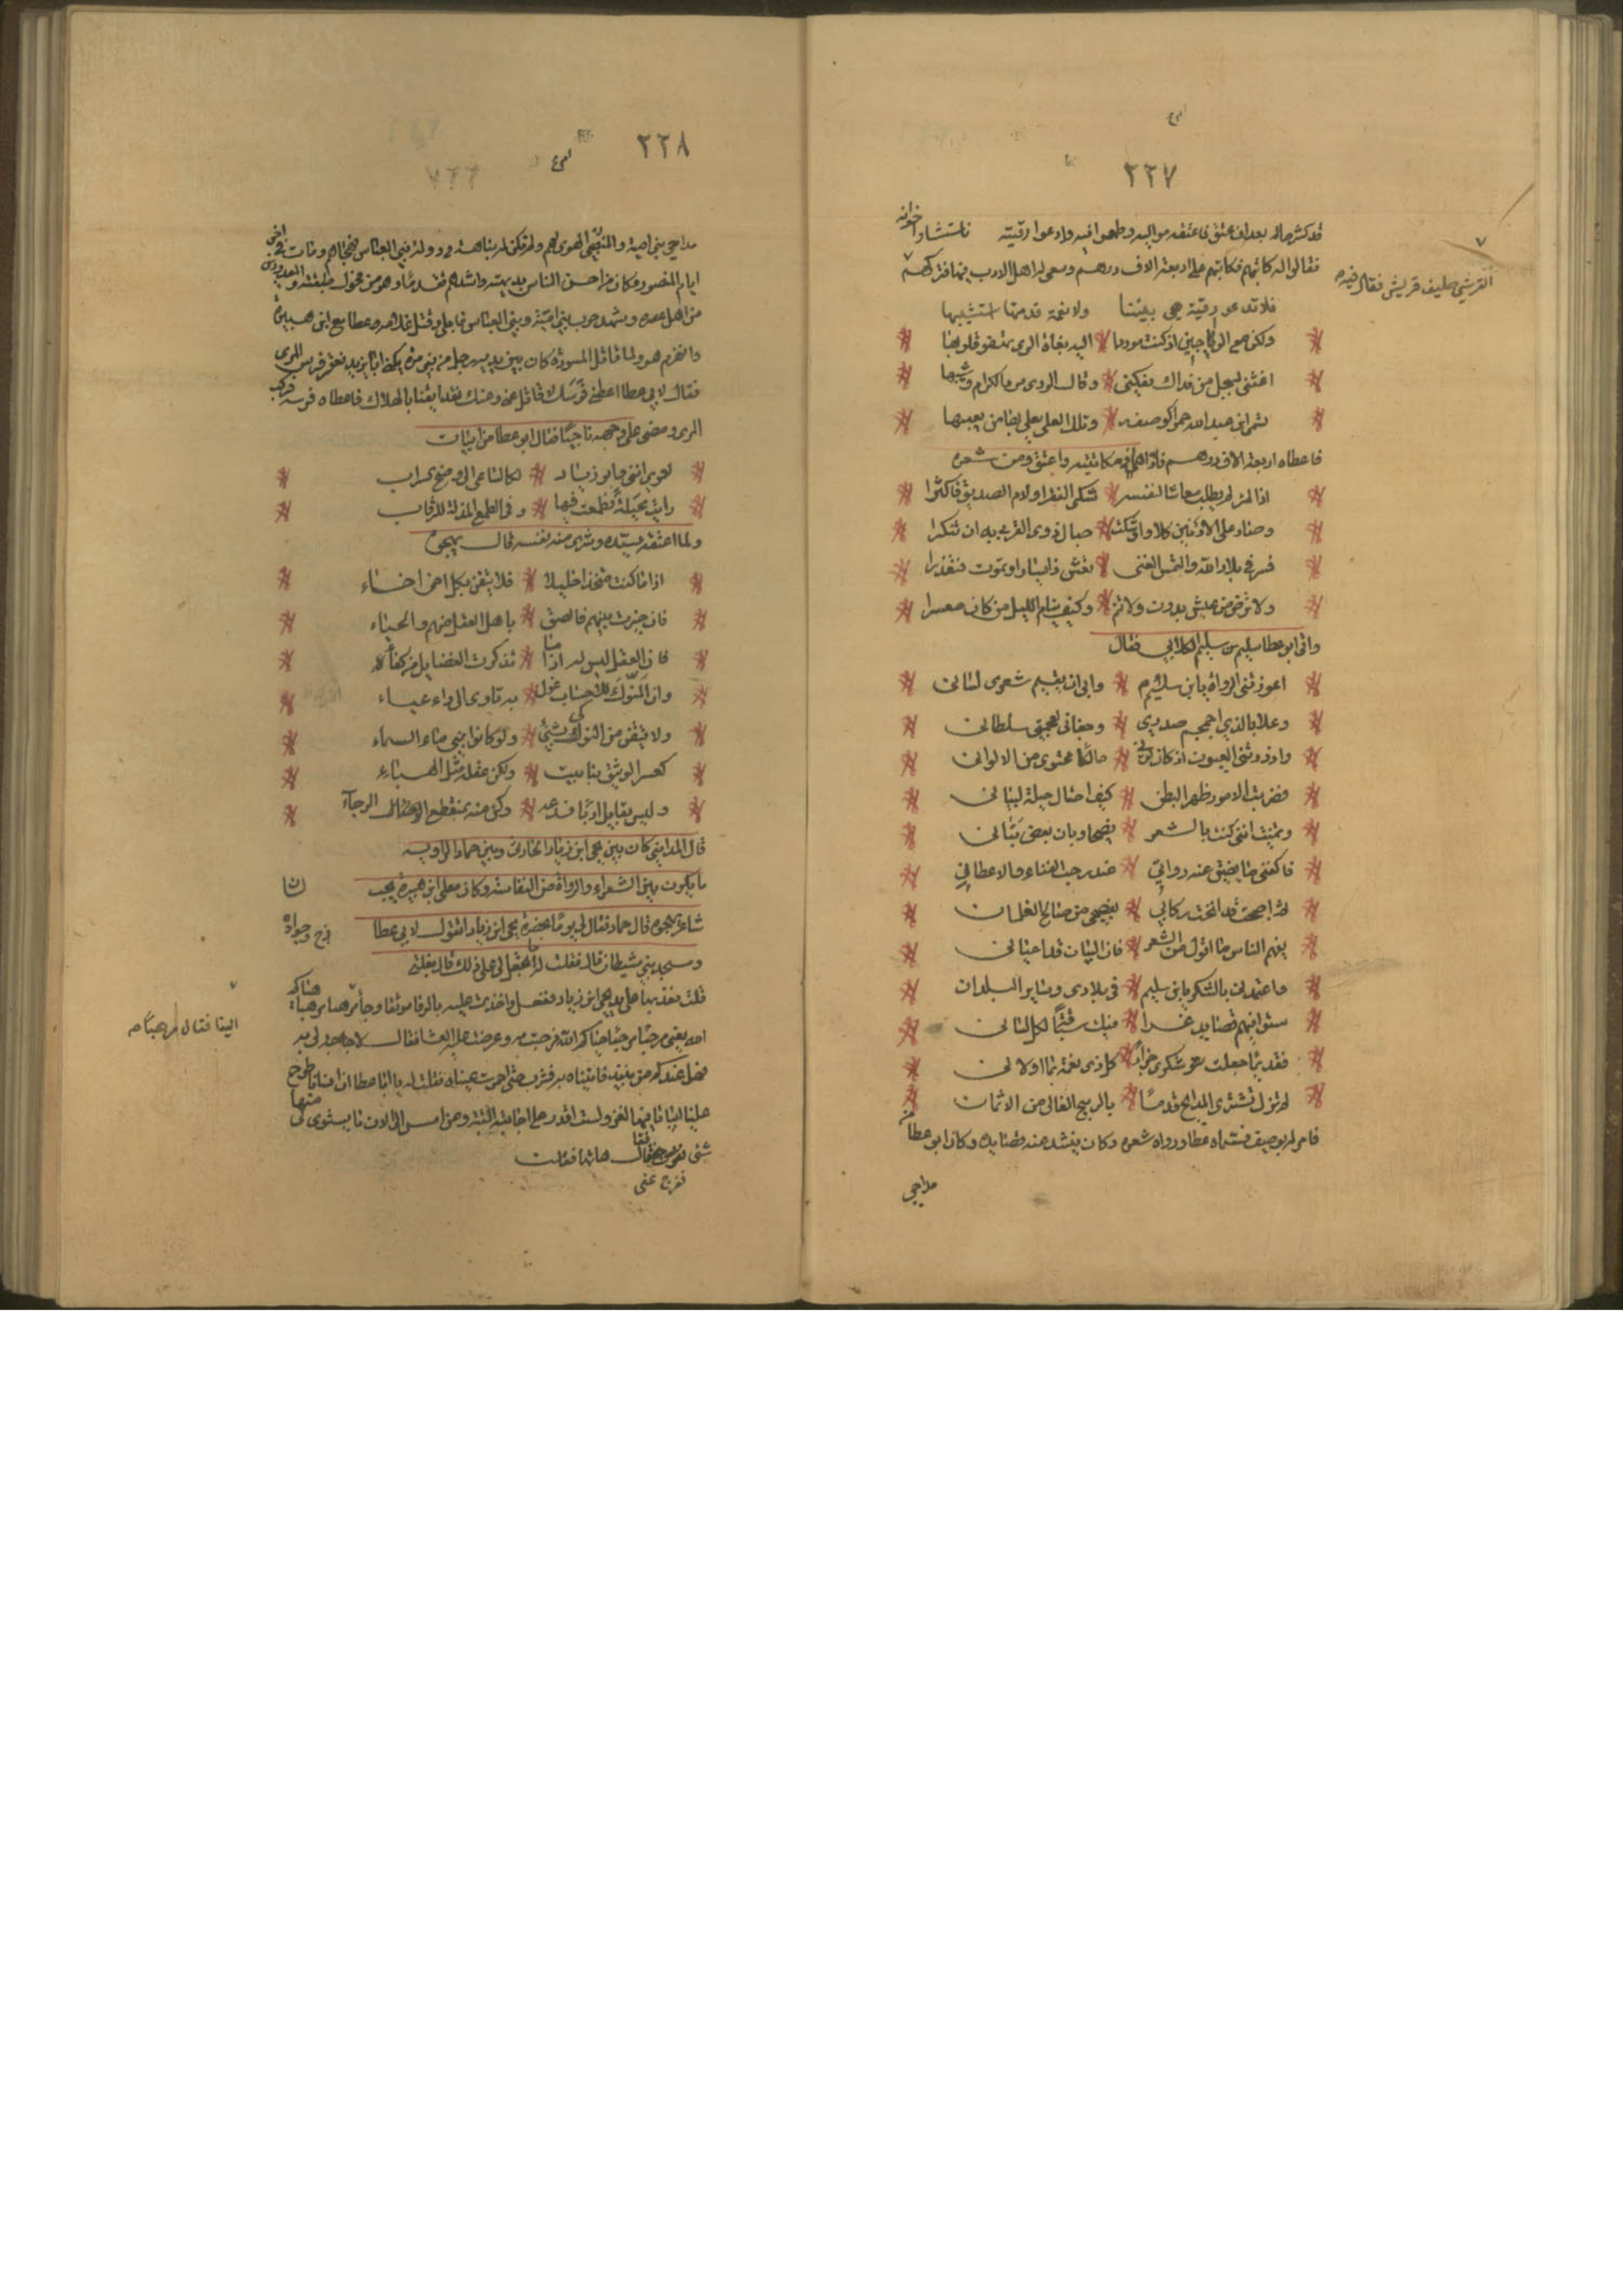 ٢٢٧
قد كثر ماله بعد ان عتق فاعنفه مواليه وطمعوا فيه وادعوا رقيته فاستشار اخوانه
فقالوا له كاتبهم فكاتبهم على اربعة الاف درهم وسعى له اهل الادب فيها فتركهم
القرشي حليف قريش فقال فيه
فلا تدعو رقية هي بيننا ولا نعمة قدمتها استثيبها
ولكن مع الراجين اذ كنت موردا اليه بغاة الري تهفو قلوبها
اغثني بسجل من نداك يكفني وقال الردى مرد الكرام وشيبها
تسمى ابن عبد الله حرا لوصفه وتلك العلى يعلى بها من يعيبها
فاعطاه اربعة الاف درهم فاداها في مكاتبته واعتق ومن شعره
اذا المرء لم يطلب معاشا لنفسه شكى الفقر او لام الصديق فاكثرا
وصار على الادنين كلا واوشكت حبال ذوي القربى به ان تنكرا
فسر في بلاد الله والتمس الغنى تعش ذا يسار او تموت فتعذرا
ولا ترض من عيش بدون ولا تنم وكيف ينام الليل من كان معسرا
واتى ابو عطا سليم بن سليم الكلابي فقال
اعوزتني الرواة يا ابن سليم وابى ان يقيم شعري لساني
وغلا بالذي اجمجم صدري وجفاني لعجمتي سلطاني
وازدرتني العيون اذ كان لوني حالكا محتوى من الالوان
فضربت الامور ظهرا لبطن كيف احتال حيلة لبياني
وتمنيت انني كنت بالشعر فصيحا وبان بعض بناني
فاكفني ما يضيق عنه رواتي
ثم اصبحت قد انخت ركابي بفصيح من صالح الغلمان
يفهم الناس ما اقول من الشعر فان البيان قد اعياني
فاعتمدني بالشكر يا ابن سليم في بلادي وساير البلدان
ستوافيهم قصايد غر فيك سباقة لكل لسان
فقديما جعلت شكري جزاء كل ذي نعمة بما اولاني
لم تزل تشتري المدايح قدما بالربيح الغالي من الاثمان
فامر له بوصيف فسماه عطا ورواه شعره وكان ينشد عنه قصايده وكان ابو عطا من
مداحي
٢٢٨
مداحي بني امية والمنصبي الهوى لهم ولم تكن له نباهة في دولة بني العباس فهجاهم ومات في اخر
ايام المنصور وكان من احسن الناس بديهة واشدهم تقدما وهو من فحول طبقته
من اهل عصره وشهد حرب بني امية وبني العباس فابلى وقتل غلامه عطا مع ابن هبيرة
وانهزم هو ولما قاتل المسودة كان بين يديه رجل من بني مرة يكنى ابا يزيد فعقر فرس المري
فقال لابي عطا اعطني فرسك لاقاتل عني وعنك فقد ايقنا بالهلاك فاعطاه فرسه فركب
المري ومضى على وجهه ناجيا فقال ابو عطا من ابيات
لعمرك انني وابو زياد لكالساعي الى وضح السراب
رايت مخيلة فطمعت فيها وفي الطمع المذلة للرقاب
ولما اعتقه سيده وشرى منه نفسه قال يهجوه
اذا ما كنت متخذا خليلا فلا يثقن بكل اخي اخاء
فان خيرت بينهم فالصق باهل العقل منهم والحياء
فان العقل ليس له اذا ما تذكرت الفضايل من كفاء
وان النوك للاحساب غول به تاوى الى داء عياء
ولا يثقن من النوكى بشيء ولو كانوا بني ماء السماء
ولكن عقله مثل الهباء
وليس بقابل ادبا فدعه وكن منه بمنقطع الرجاء
قال المدايني كان بين يحيى ابن زياد الحارثي وبين حماد الراوية
ما يكون بين الشعراء والرواة من النفاسة وكان معلى ابن هبيرة يحب ان
شاعر يهجوه قال حماد فقال لي يوما بحضرة يحيى ابن زياد اتقول لابي عطا زج وجرادة
ومسجد بني شيطان قال فقلت له ما تجعل لي على ذلك قال بغلتي
قلت فعد بها على يدي يحيى ابن زياد ففعل واخذت عليه بالوفا موثقا وجا
الينا فقال مرهبا
الله يعني مرحبا مرحبا حياكم الله فرحبت به وعرضت عليه العشا فقال لا حاجة لي به
هل عندكم من نبيذ فاتيناه به فشرب حتى احمرت عيناه فقلت له يا ابا عطا ان انسانا طرح
علينا ابياتا فيها لغز ولست اقدر على اجابته البتة ومن امس الى الان ما يستوى لي منها
شي ففرج عني فقال هاتها فقلت